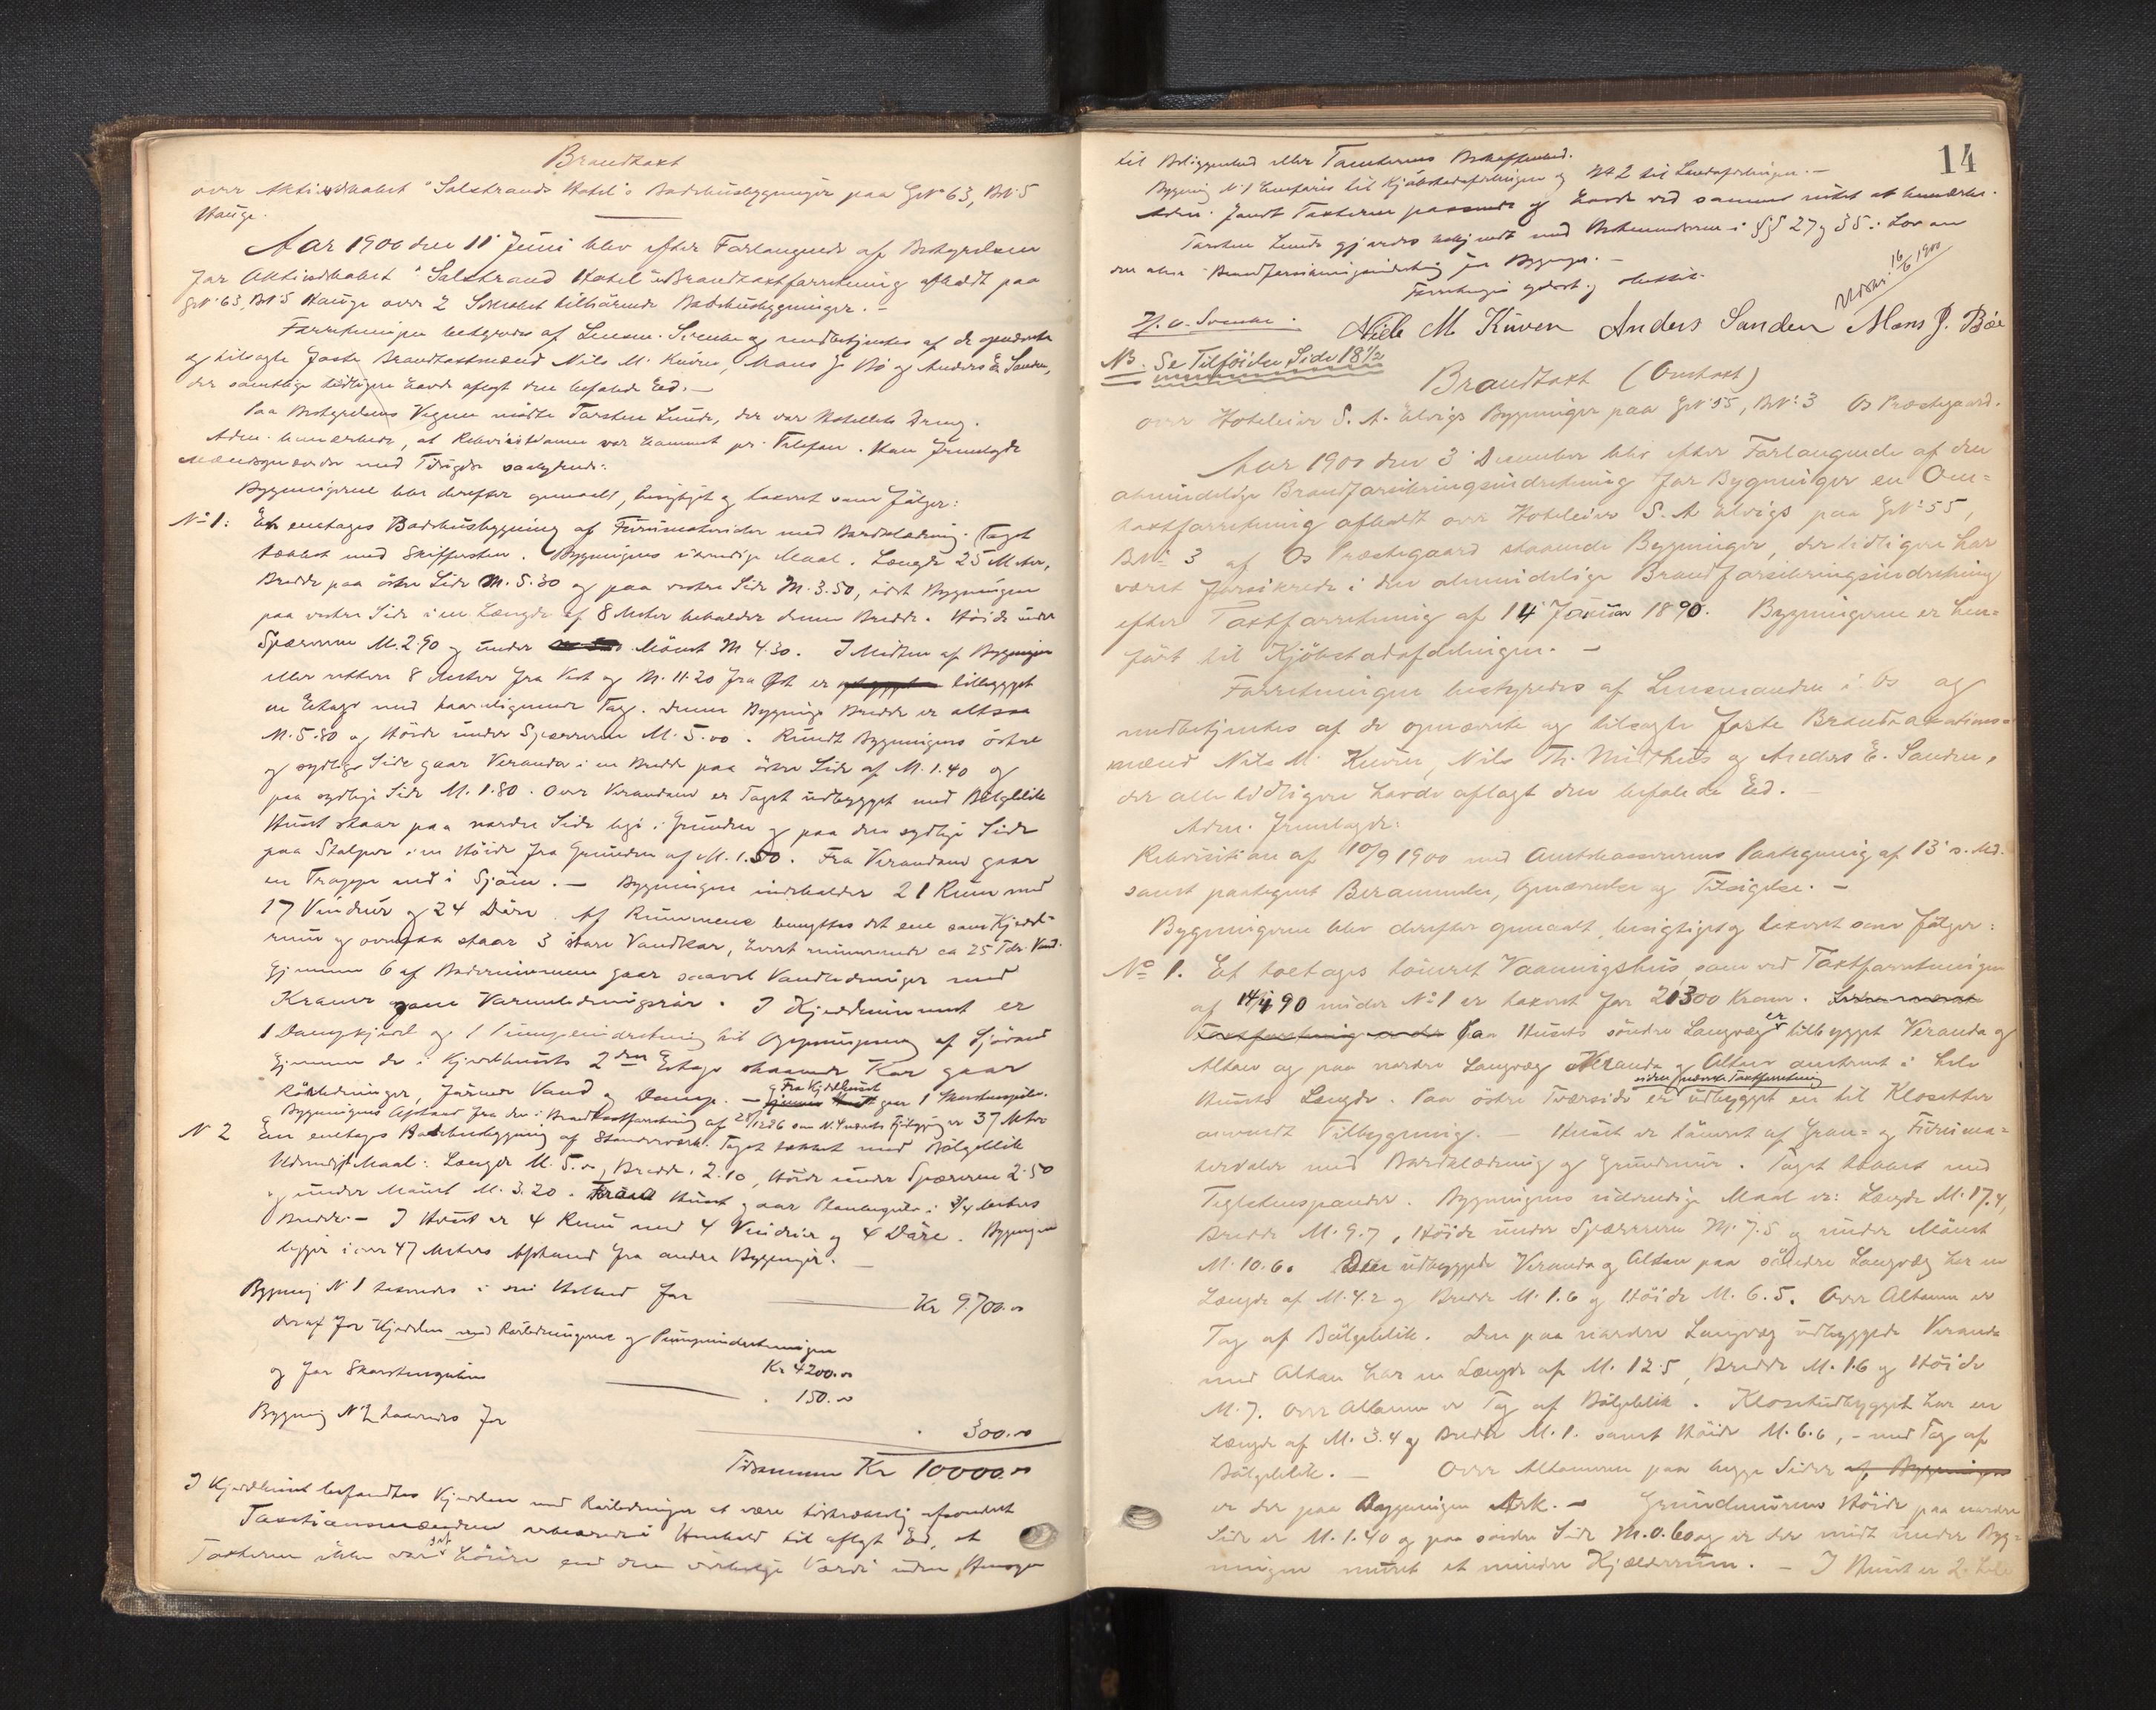 Brandtaxt
over Aktieselskabet "Solstrands Hotel"s Badehusbygninger paa GNo 63, BNo 5
Hauge.
Aar 1900 den 11' Juni blev efter Forlangende af Bestyrelsen
for Aktieselskabet "Solstrand Hotel" Brandtaxtforretning afholdt paa
GNo 63, BNo 5 Hauge over 2 Selskabet tilhörende Badehusbygninger. -
Forretningen bestyredes af Lensm. og medbetjentes af de opnævnte
og tilsagte faste Brandtaxtmænd Nils M. Kuven, Mons J. Bö og Anders E. Sanden,
der samtlige tidligere havde aflagt den befalede Ed. -
Paa Bestyrelsens Vegne mödte Torsten Lunde, der var Hotellets Dreng.
Adm. bemærkede, at Rekvisitionen var kommet pr. Telefon. Han fremlagde
Mændsopnævnelse med Tilsigelses paategnende:
Bygningerne blev derefter opmaalt, besigtiget og taxeret som fölger:
No 1: Et enetages Badehusbygning af Furumaterialer med Bordklædning. Taget
tækket med Skiffersten. Bygningens udvendige Maal. Længde 25 Meter,
Bredde paa östre Side M. 5.30 og paa vestre Side M. 3.50, idet Bygningen
paa vestre Side i en Længde af 8 Meter beholder denne Bredde. Höide under
Spærrerne M. 2.90 og under Mönet M 4.30. I Midten af Bygningen
eller rettere 8 Meter fra Vest og M. 11.20 fra Öst er tilbygget
en Etage med Tag. Denne Bygnings Bredde er altsaa
M. 5.80 og Höide under Spærrerne M. 5.00. Rundt Bygningens östre
og sydlige Side gaar Veranda i en Bredde paa östre Side af M. 1.40 og
paa sydlige Side M. 1.80. Over Verandaen er Taget udbygget med Bölgeblik
Huset staar paa nordre Side lige i Grunden og paa den sydlige Side
paa Stolper i en Höide fra Grunden af M. 1.50. Fra Verandaen gaar
en Trappe ned i Sjöen. - Bygningen indeholder 21 Rum med
17 Vinduer og 24 Döre. Af Rummene benyttes det ene som Kjedel-
rum og ovenpaa staar 3 store Vandkar, hvert rummende ca 25 Tdr. Vand.
Gjennem 6 af Baderummene gaar saavel Vandledninger med
Kraner som Varmeledningsrör. I Kjedelrummet er
1 Dampkjedel og 1 Pumpeindretning til Oppumpning af Sjövand
Gjennem de i Kjedelhusets 2den Etage staaende Kar gaar
Rörledninger, förende Vand og Damp. - Fra Kjedelhuset gaar 1 Skorstenspibe.
Bygningens Afstand fra den i Brandtaxtforretning af 28/12 86 som No. 4 nævnte er 37 Meter
N 2 En enetages Badehusbygning af Standerværk. Taget tækket med Bölgeblik
Udvendigt Maal: Længde M. 5.00, Bredde. 2.10, Höide under Spærrerne 2.50
og under Mönet M. 3.20. Huset gaar i 3/4 Meters
Bredde. - I Huset er 4 Rum med 4 Vinduer og 4 Döre. Bygningen
ligger i over 47 Meters Afstand fra andre Bygninger. -
Bygning No 1 taxeredes i sin Helhed for Kr 9700.00
deraf for Kjedelen med Rörledningerne og Pumpeindretningen
Kr 4200.00
og for Skorstenspiben 150.00
Bygning No 2 taxeredes for 300.00
Tilsammen Kr 10000.00
I Kjedelhuset befandtes Kjedelen med Rörledninger at være tilstrækkelig afsondret
Taxtionsmændene erklærede i Henhold til aflagt Ed, at
Taxterne ikke var sat höiere end den virkelige Værdi uden Hensyn
14
til Beliggenhed eller Tomternes Beskaffenhed.
Bygning No 1 henföres til Kjöbstadafdelingen og No 2 til Landafdelingen. -
Adm. fandt Taxterne passende og havde ved samme intet at bemærke.
Torsten Lunde gjordes bekjendt med Bestemmelserne i §§ 27 og 35 i Lov om
den alm. Brandforsikringsindretning for Bygninger. -
Forretningen oplæst og sluttet.
Udskr. 16/6 1900
Niels M. Kuven Anders Sanden Mons J. Böe
NB. Se Tilföielse Side 18 1/2
Brandtaxt (Omtaxt)
over Hoteleier S. A. Elvigs Bygninger paa GNo 55, BNo 3 Os Præstegaard.
Aar 1900 den 3' December blev efter Forlangende af den
almindelige Brandforsikringsindretning for Bygninger en Om=
taxtforretning afholdt over Hoteleier S. A. Elvigs paa GNo 55,
BNo 3 af Os Præstegaard staaende Bygninger, der tidligere har
været forsikrede i den almindelige Brandforsikringsindretning
efter Taxtforretning af 14' Januar 1890. Bygningerne er hen=
fört til Kjöbstadafdelingen. -
Forretningen bestyredes af Lensmanden i Os og
medbetjentes af de opnævnte og tilsagte faste Brandtaxations=
mænd Nils M. Kuven, Nils Th. Midthus og Anders E. Sanden,
der alle tidligere havde aflagt den befalede Ed. -
Adm. fremlagde:
Rekvisition af 10/9 1900 med Amtskassererens Paategning af 13' s. Md.
samt paategnet Berammelse, Opnævnelse og Tilsigelse. -
Bygningerne blev derefter opmaalt, besigtiget og taxeret som fölger:
No 1. Et toetages tömret Vaaningshus, som ved Taxtforretningen
af 14/1 90 under No 1 er taxeret for 21300 Kroner.
Paa Husets söndre Langvæg er tilbygget Veranda og
Altan og paa nordre Langvæg Veranda og Altan omtrent i hele
Husets Længde. Paa östre Tværside er siden nævnte Taxtforretning udbygget en til Klosetter
anvendt Tilbygning. - Huset er tömret af Gran= og Furuma=
terialer med Bordklædning og Grundmur. Taget tækket med
Teglstenspander. Bygningens udvendige Maal er: Længde M. 17.4,
Bredde M. 9.7, Höide under Spærrerne M. 7.5 og under Mönet
M. 10.6. Den udbyggede Veranda og Altan paa söndre Langvæg har en
Længde af M. 4.2 og Bredde M. 1.6 og Höide M. 6.5. Over Altanen er
Tag af Bölgeblik. Den paa nordre Langvæg udbyggede Veranda
med Altan har en Længde af M. 12.5, Bredde M. 1.6 og Höide
M. 7. Over Altanen er Tag af Bölgeblik. Klosetudbygget har en
Længde af M. 3.4 og Bredde M. 1. samt Höide M. 6.6, - med Tag af
Bölgeblik. - Over Altanerne paa begge Sider af Bygningen
er der paa Bygningen Ark. - Grundmurens Höide paa nordre
Side er M. 1.40 og paa söndre Side M. 0.60 og er der midt under Byg=
ningen muret et mindre Kjælderrum. - I Huset er 2 hele